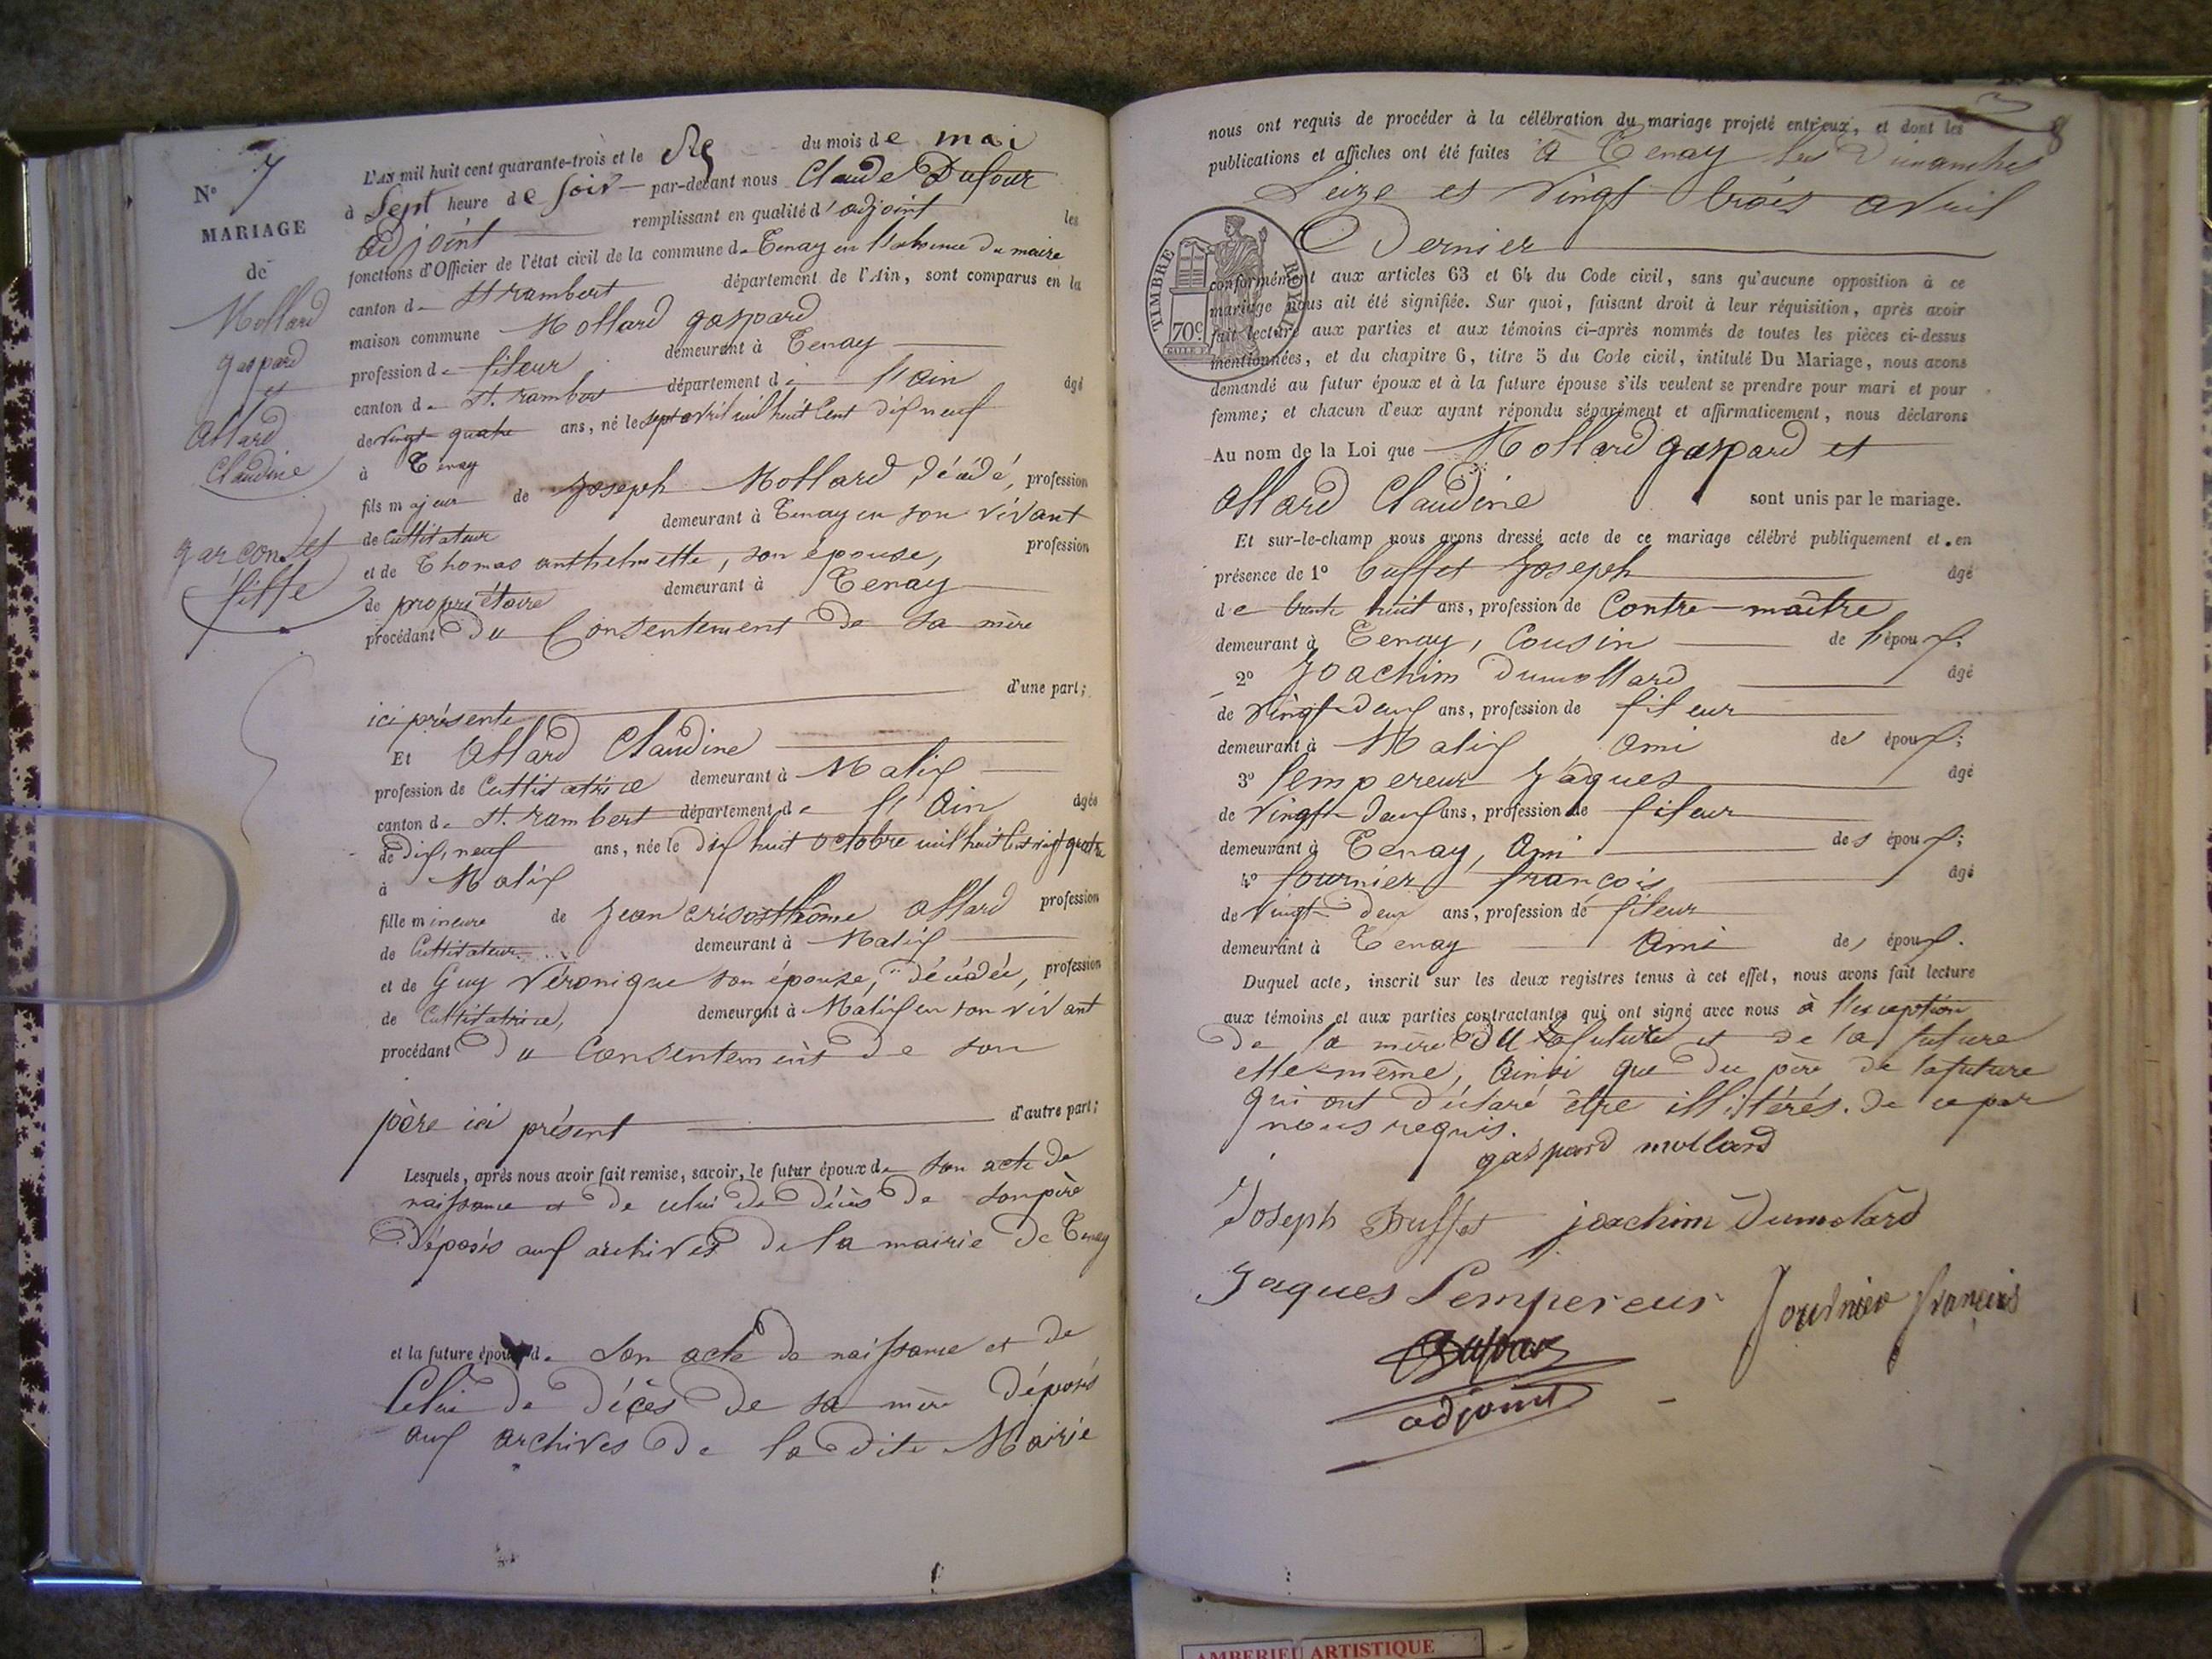 N.° 7
MARIAGE
de
Mollard
gaspard
et
Allard
Claudine
garçon et
fille
L'AN mil huit cent quarante-trois et le du mois de mai
à Sept heure de soir par-devant nous Claude Dufour
adjoint remplissant en qualité d'adjoint les
fonctions d'Officier de l'état civil de la commune de Tenay en l'absence du maire
canton de St rambert département de l'Ain, sont comparus en la
maison commune Mollard gaspard
profession de fileur demeurant à Tenay
canton de St. rambert département de l'ain âgé
de vingt quatre ans, né le sept avril mil huit Cent dix neuf
à Tenay
fils majeur de Joseph Mollard décédé, profession
de Cultivateur demeurant à Tenay en son vivant
et de Thomas anthelmette, son épouse, profession
de propriétaire demeurant à Tenay
procédant du Consentement de sa mère
ici présente d'une part;
Et Allard Claudine
profession de Cultivatrice demeurant à Malix
canton de St. rambert département de l'Ain âgée
de dix neuf ans, née le dix huit octobre mil huit Cent vingt quatre
à Malix
fille mineure de Jean crisosthôme Allard profession
de Cultivateur demeurant à Malix
et de Guy Véronique son épouse, décédée, profession
de Cultivatrice, demeurant à Malix en son vivant
procédant du Consentement de son
père ici présent d'autre part;
Lesquels, après nous avoir fait remise, savoir, le futur époux de son acte de
naissance et de celui de décès de son père
Déposés aux archives de la mairie de Tenay
et la future épouse de son acte de naissance et de
Celui de décès de sa mère déposés
aux archives de la dite Mairie
8
nous ont requis de procéder à la célébration du mariage projeté entr'eux, et dont les
publications et affiches ont été faites à Tenay les Dimanches
Seize et Vingt trois avril
Dernier
TIMBRE ROYAL
70c.
conformément aux articles 63 et 64 du Code civil, sans qu'aucune opposition à ce
mariage nous ait été signifiée. Sur quoi, faisant droit à leur réquisition, après avoir
fait lecture aux parties et aux témoins ci-après nommés de toutes les pièces ci-dessus
mentionnées, et du chapitre 6, titre 5 du Code civil, intitulé Du Mariage, nous avons
demandé au futur époux et à la future épouse s'ils veulent se prendre pour mari et pour
femme; et chacun d'eux ayant répondu séparément et affirmativement, nous déclarons
Au nom de la Loi que Mollard gaspard et
Allard Claudine sont unis par le mariage.
Et sur-le-champ nous avons dressé acte de ce mariage célébré publiquement et en
présence de 1° buffet Joseph âgé
de trente huit ans, profession de Contre-maître
demeurant à Tenay, Cousin de l'époux;
2° Joachim Dumollard âgé
de Vingt-deux ans, profession de fileur
demeurant à Malix Ami des époux;
3° lempereur Jaques âgé
de Vingt-deux ans, profession de fileur
demeurant à Tenay, Ami des époux;
4° fournier françois âgé
de vingt deux ans, profession de fileur
demeurant à Tenay Ami des époux.
Duquel acte, inscrit sur les deux registres tenus à cet effet, nous avons fait lecture
aux témoins et aux parties contractantes qui ont signé avec nous à l'exception
de la mère du futur et de la future
elle même, Ainsi que du père de la future
qui ont déclaré être illitérés. de ce par
nous requis.
gaspard mollard
Joseph Buffet joachim Dumolard
Jaques Lempereur fournier françois
Dufour
adjoint
AMBERIEU ARTISTIQUE